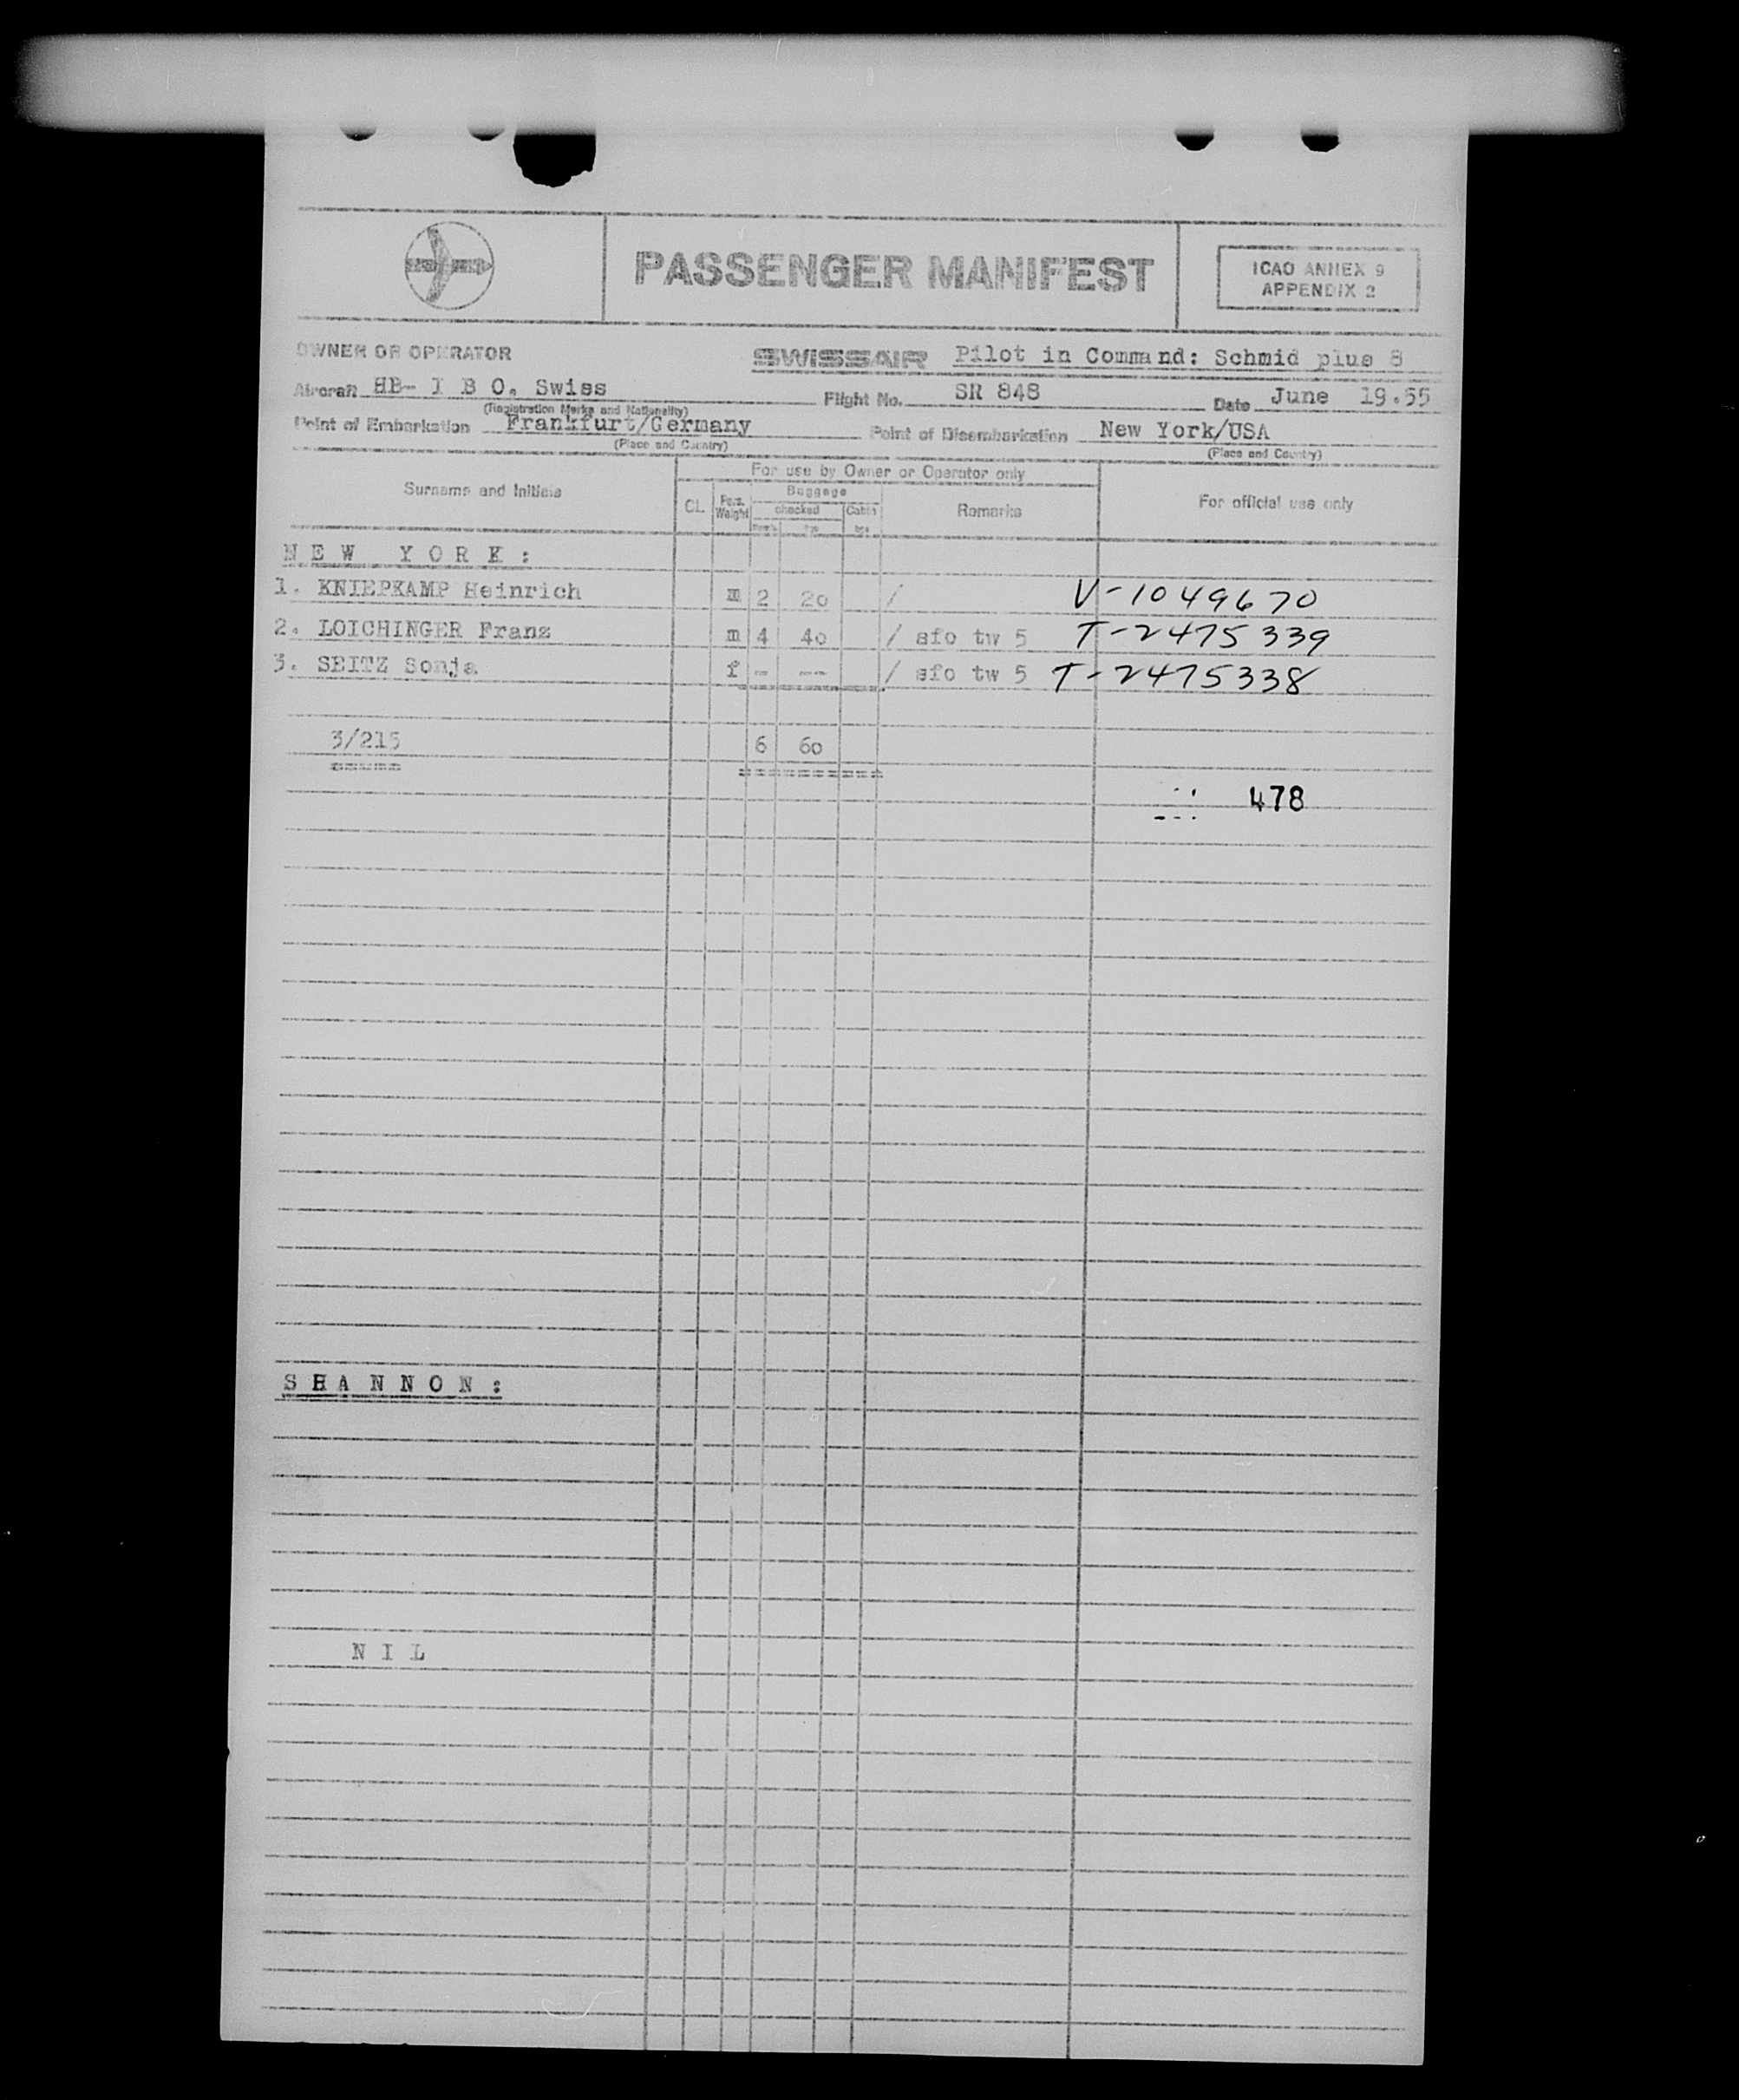 PASSENGER MANIFEST
ICAO ANNEX 9
APPENDIX 2
OWNER OR OPERATOR SWISSAIR Pilot in Command: Schmid plus 8
Aircraft HB- I B O. Swiss Flight No. SR 848 Date June 19.55
(Registration Marks and Nationality)
Point of Embarkation Frankfurt/Germany Point of Disembarkation New York/USA
(Place and Country) (Place and Country)
For use by Owner or Operator only
Surname and Initials CL. Pers. Weight Baggage checked Cabin Remarks For official use only
kgs
N E W Y O R K :
1. KNIEPKAMP Heinrich m 2 20 / V-1049670
2. LOICHINGER Franz m 4 40 / sfo tw 5 T-2475339
3. SEITZ Sonja f - --- / sfo tw 5 T-2475338
3/215 6 60
478
S H A N N O N :
N I L